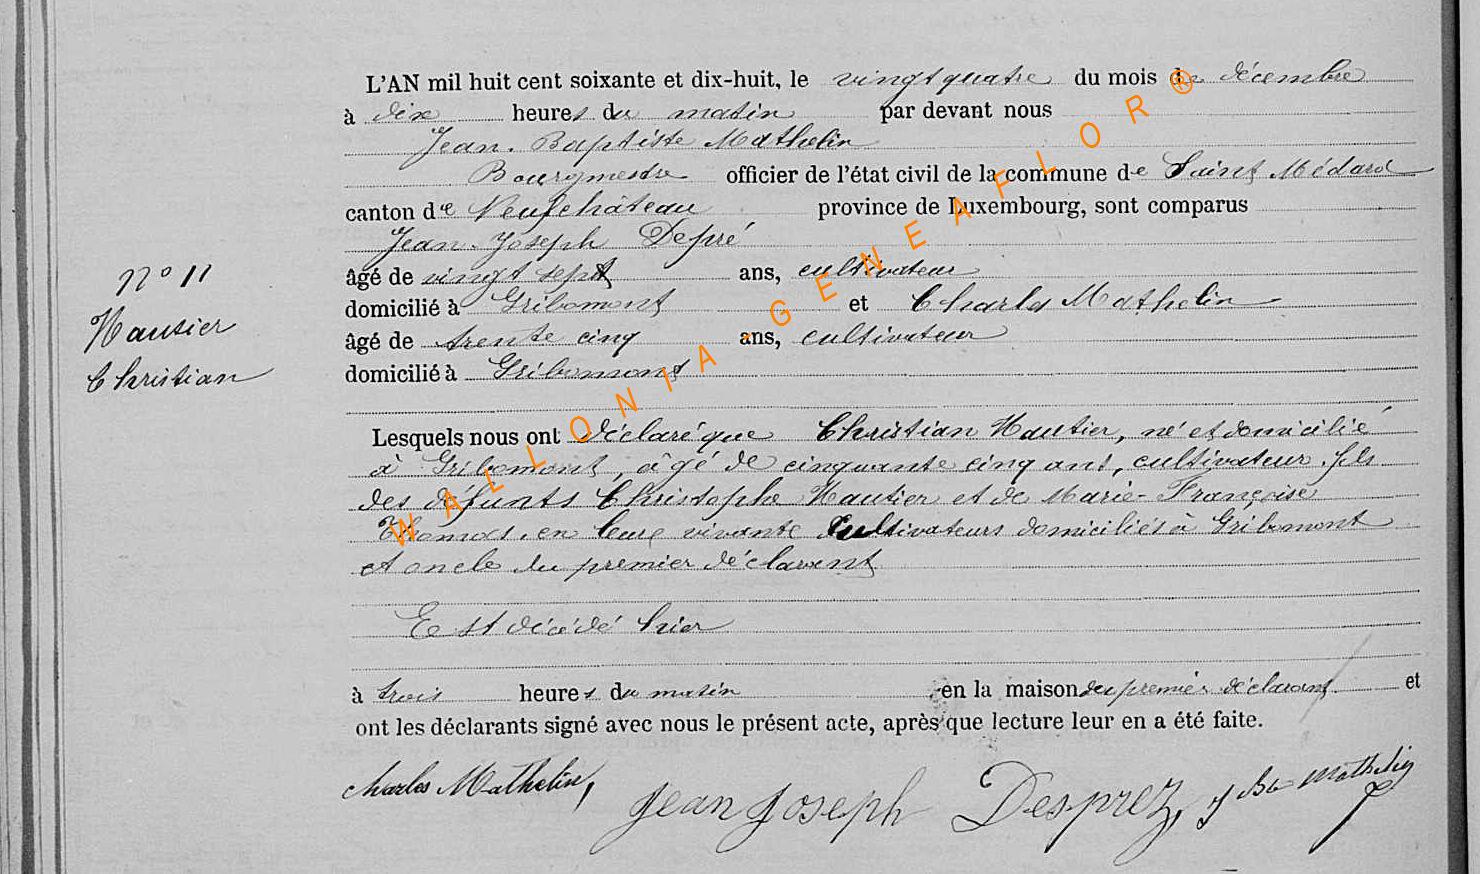 L'AN mil huit cent soixante et dix-huit, le vingt quatre du mois de décembre
à dix heures du matin par devant nous
Jean-Baptiste Mathelin
Bourgmestre officier de l'état civil de la commune de Saint Médard
canton de Neufchâteau province de Luxembourg, sont comparus
Jean-Joseph Depré
N° 11
âgé de vingt sept ans, cultivateur
domicilié à Gribomont et Charles Mathelin
Hautier
âgé de trente cinq ans, cultivateur
Christian
domicilié à Gribomont
Lesquels nous ont déclaré que Christian Hautier, né et domicilié
à Gribomont, âgé de cinquante cinq ans, cultivateur, fils
des défunts Christophe Hautier et de Marie-Françoise
Thomas, en leur vivante cultivateurs domiciliés à Gribomont
et oncle du premier déclarant
Est décédé hier
à trois heures du matin en la maison du premier déclarant et
ont les déclarants signé avec nous le présent acte, après que lecture leur en a été faite.
Charles Mathelin, Jean Joseph Desprez, J Bte Mathelin
WALLONIA-GENEAFLOR®